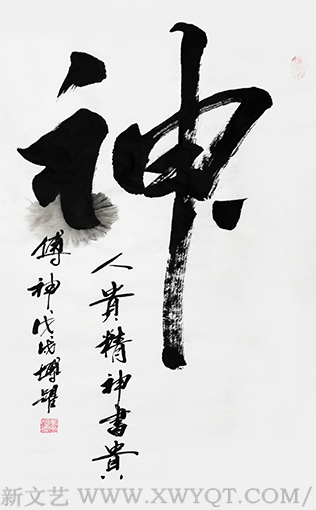 神
人貴精神書貴
傳神戊戌
新文艺 WWW.XWYQT.COM/